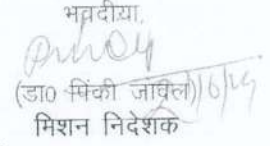 भवदीया,
(डा० पिंकी जोवेल)
मिशन निदेशक